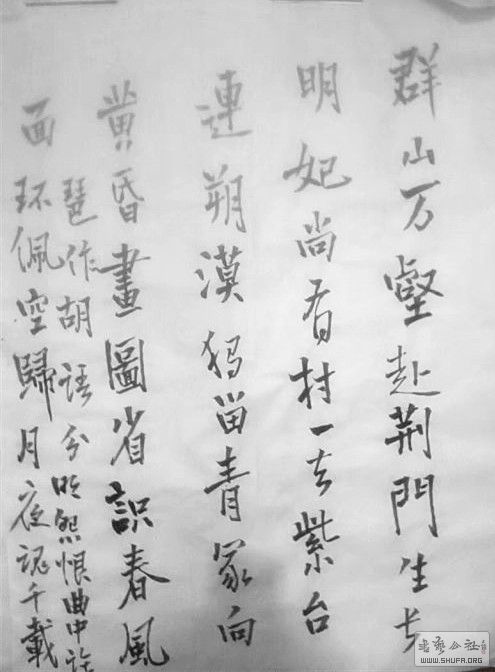 群山万壑赴荆門生长
明妃尚有村一去紫台
連朔漠独留青冢向
黄昏畫圖省識春風
面环佩空歸月夜魂千載
琶作胡語分明怨恨曲中論
書法公社
WWW.SHUFA.ORG